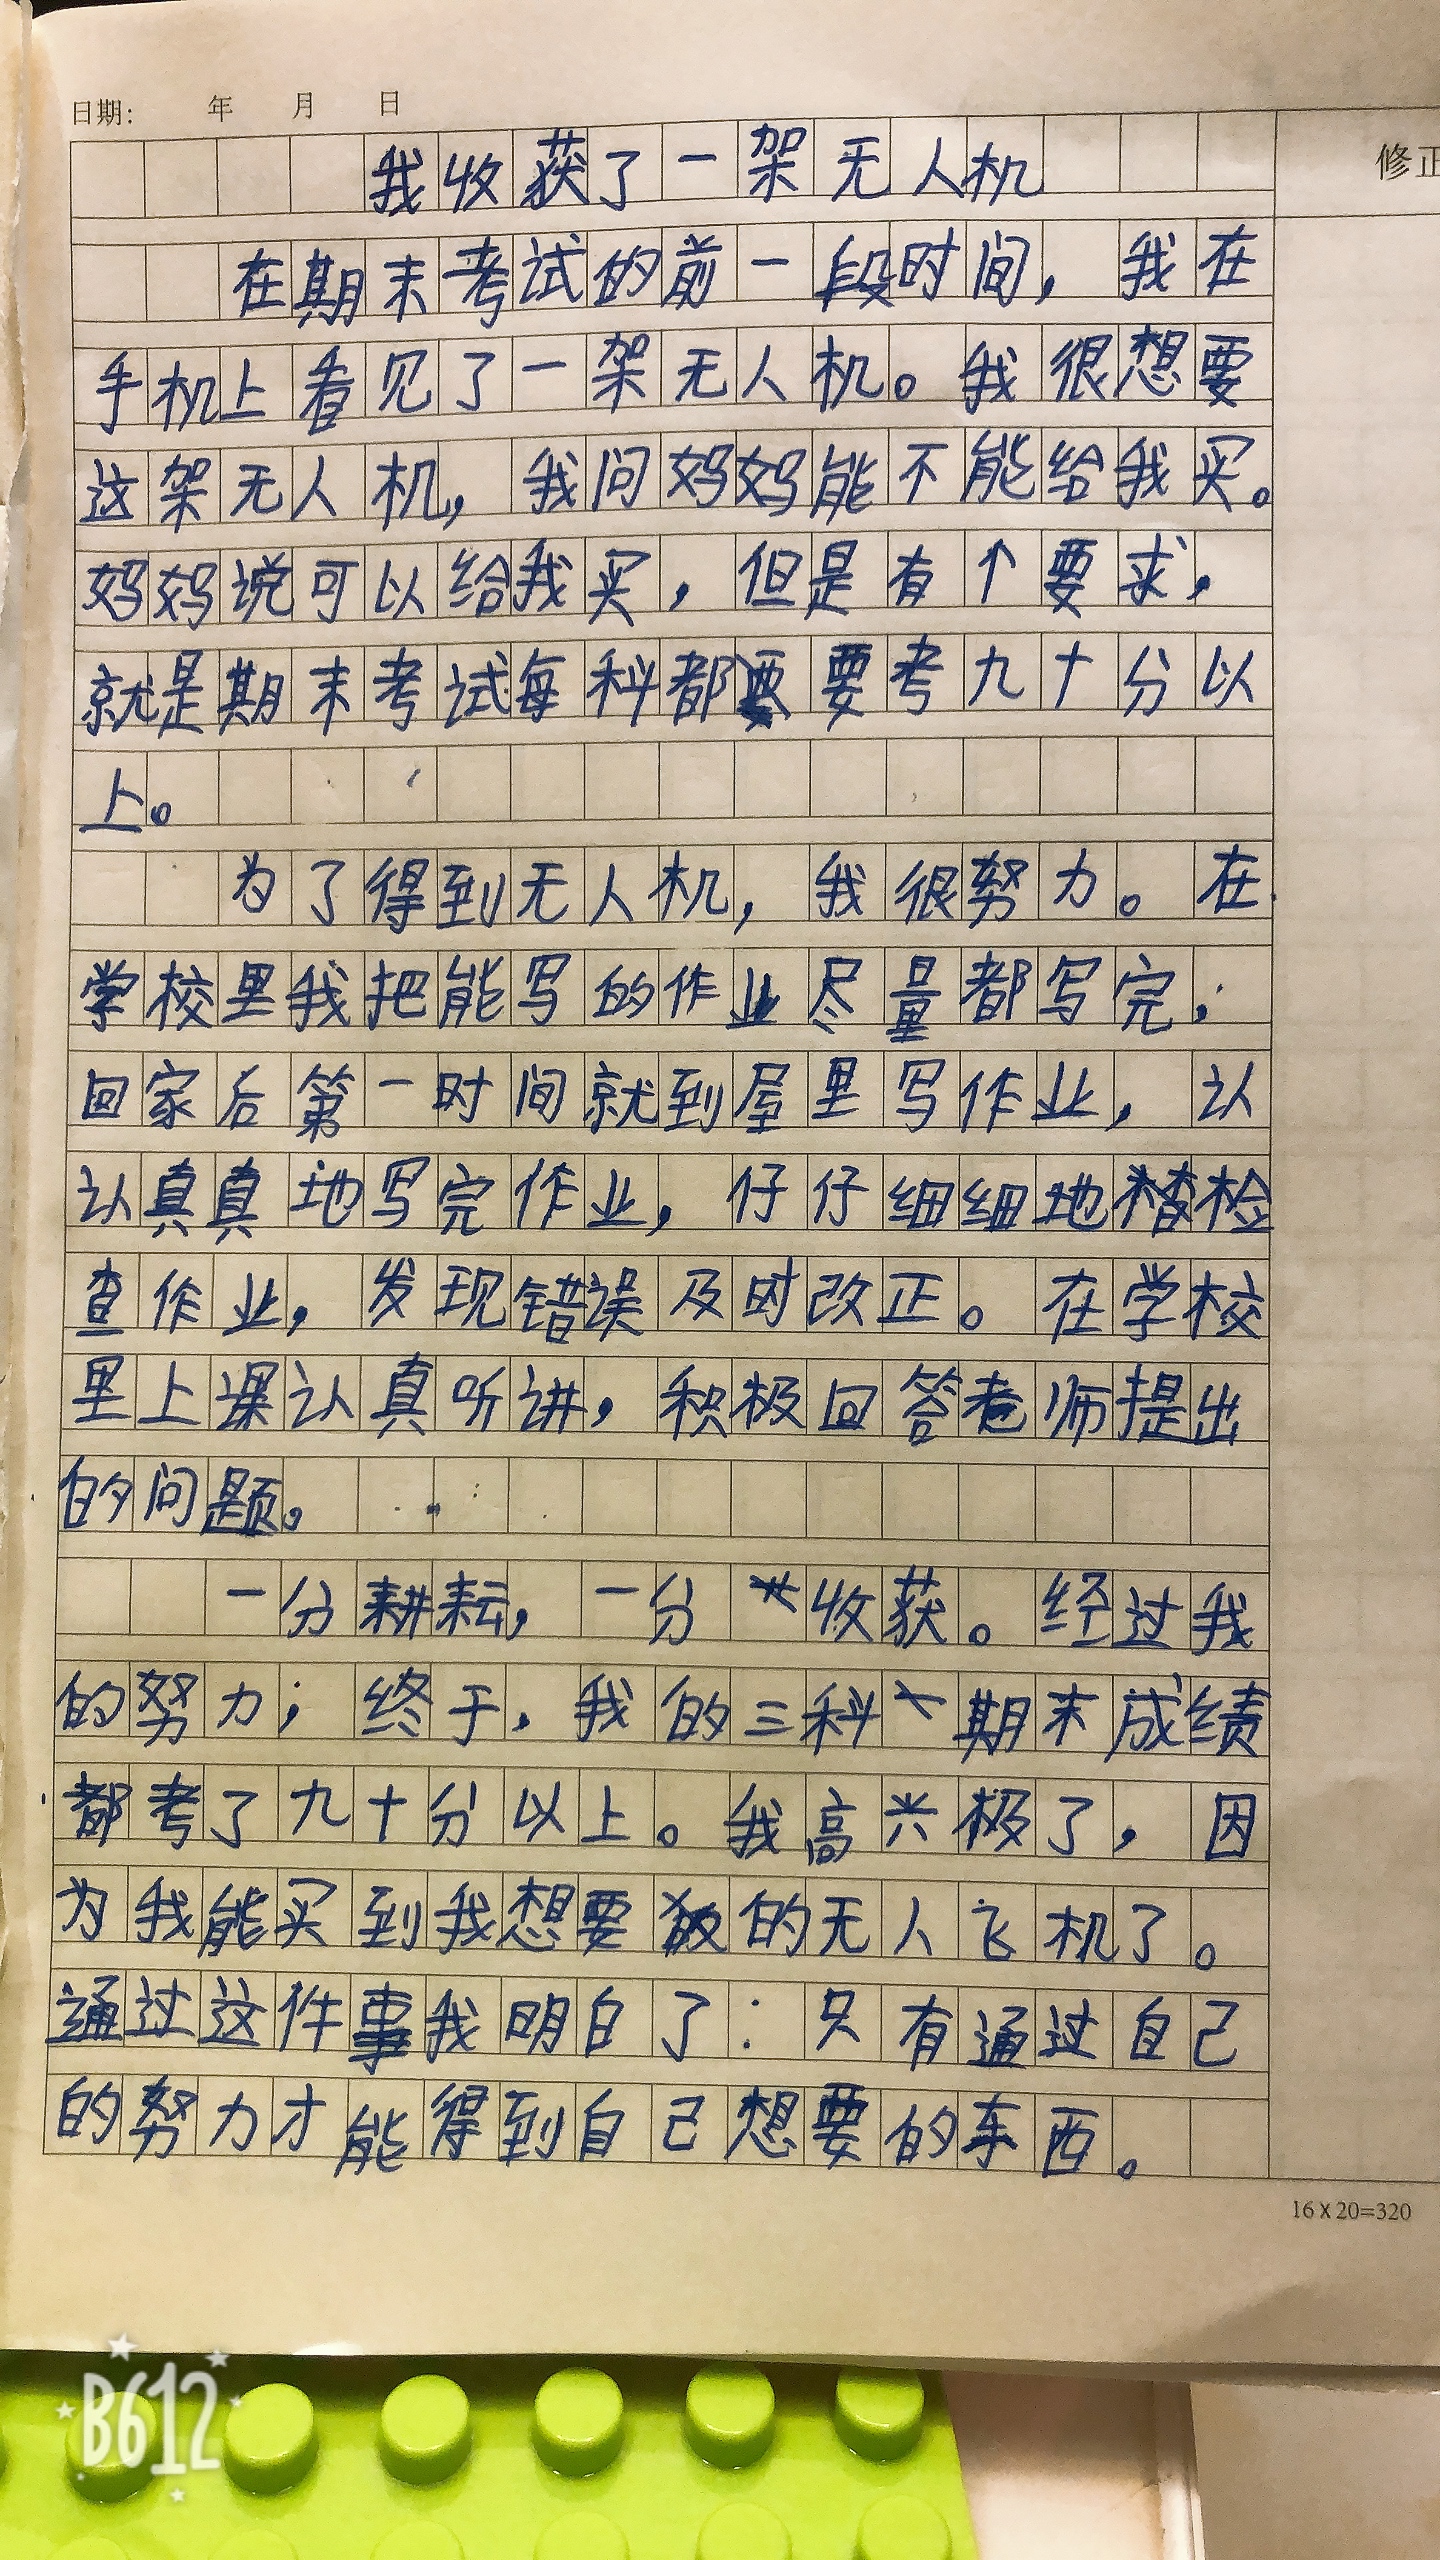 日期: 年 月 日
修正
我收获了一架无人机
在期末考试的前一段时间，我在
手机上看见了一架无人机。我很想要
这架无人机，我问妈妈能不能给我买。
妈妈说可以给我买，但是有个要求，
就是期末考试每科都要考九十分以
上。
为了得到无人机，我很努力。在
学校里我把能写的作业尽量都写完；
回家后第一时间就到屋里写作业，认
认真真地写完作业，仔仔细细地检
查作业，发现错误及时改正。在学校
里上课认真听讲，积极回答老师提出
的问题。
一分耕耘，一分收获。经过我
的努力；终于，我的三科期末成绩
都考了九十分以上。我高兴极了，因
为我能买到我想要的无人飞机了。
通过这件事我明白了：只有通过自己
的努力才能得到自己想要的东西。
16×20=320
B612